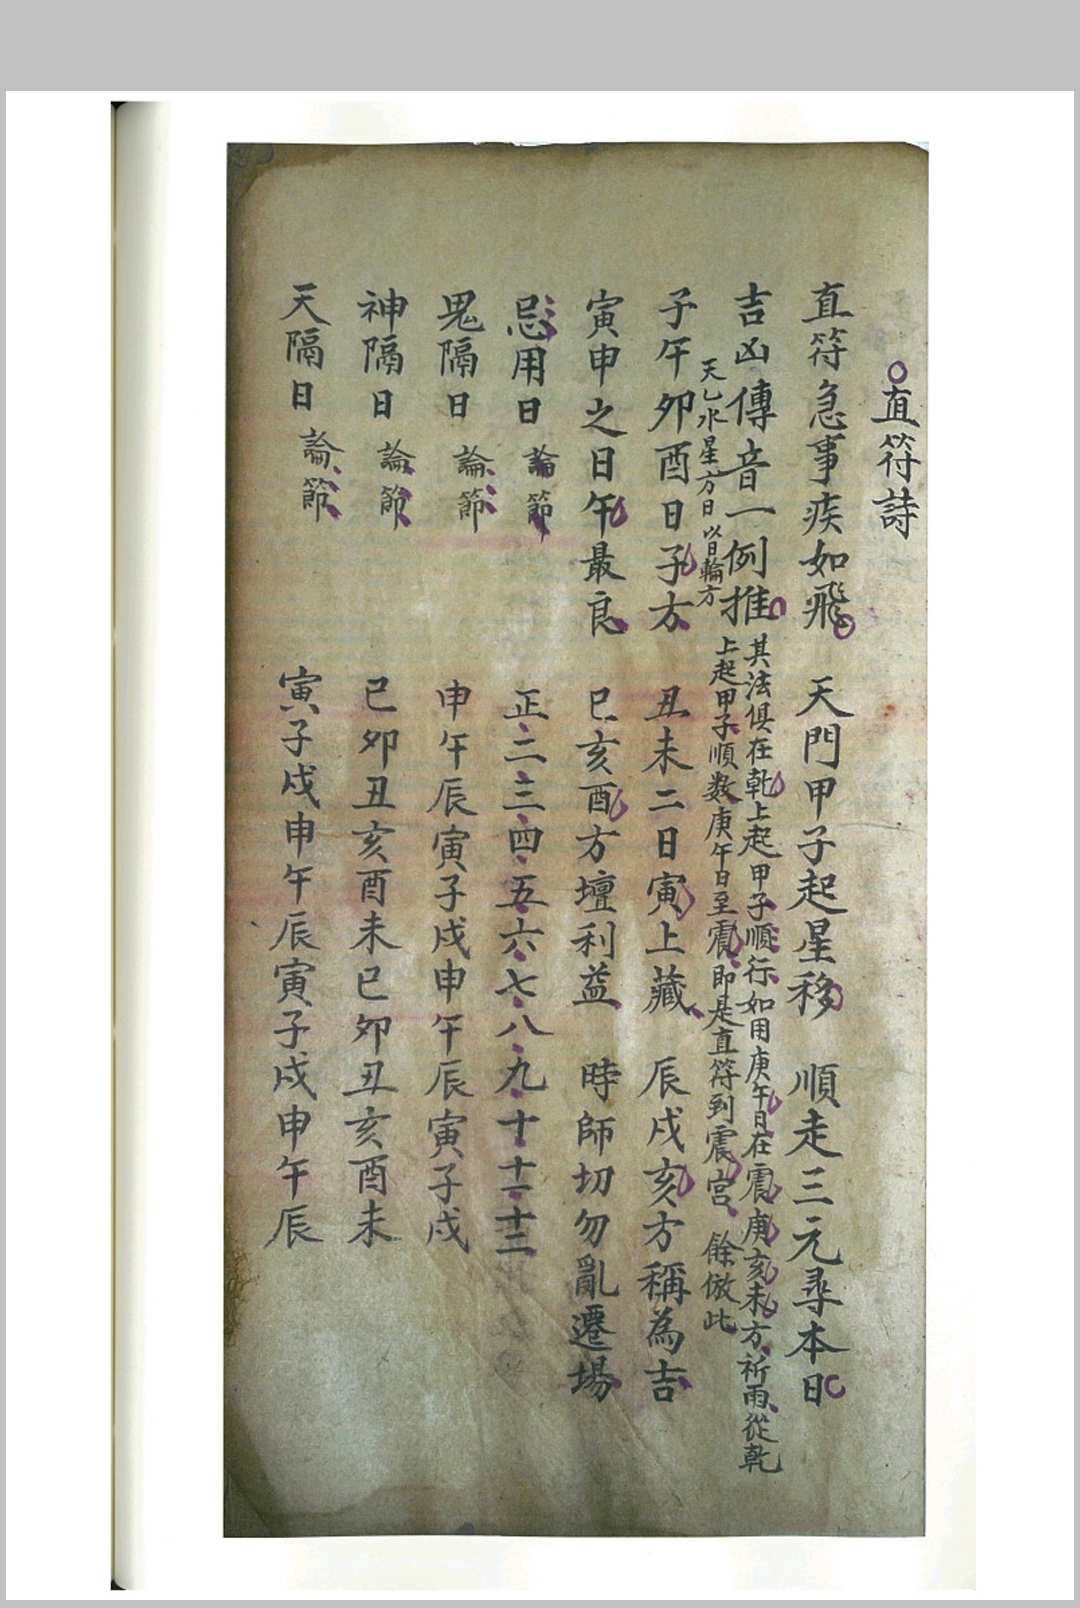 直符詩
直符急事疾如飛 天門甲子起星移 順走三元尋本日
吉凶傳音一例推 其法俱在乾上起甲子順行如用庚午日在震庚亥未方祈雨從乾
上起甲子順数庚午日至震即是直符到震宮 餘倣此
天乙水星方日 以日輪方
子午卯酉日子方 丑未二日寅上藏 辰戌亥方稱為吉
寅申之日午最良 巳亥酉方壇利益 時師切勿亂遷場
忌用日 論節 正二三四五六七八九十十一十二
鬼隔日 論節 申午辰寅子戌申午辰寅子戌
神隔日 論節 巳卯丑亥酉未巳卯丑亥酉未
天隔日 論節 寅子戌申午辰寅子戌申午辰